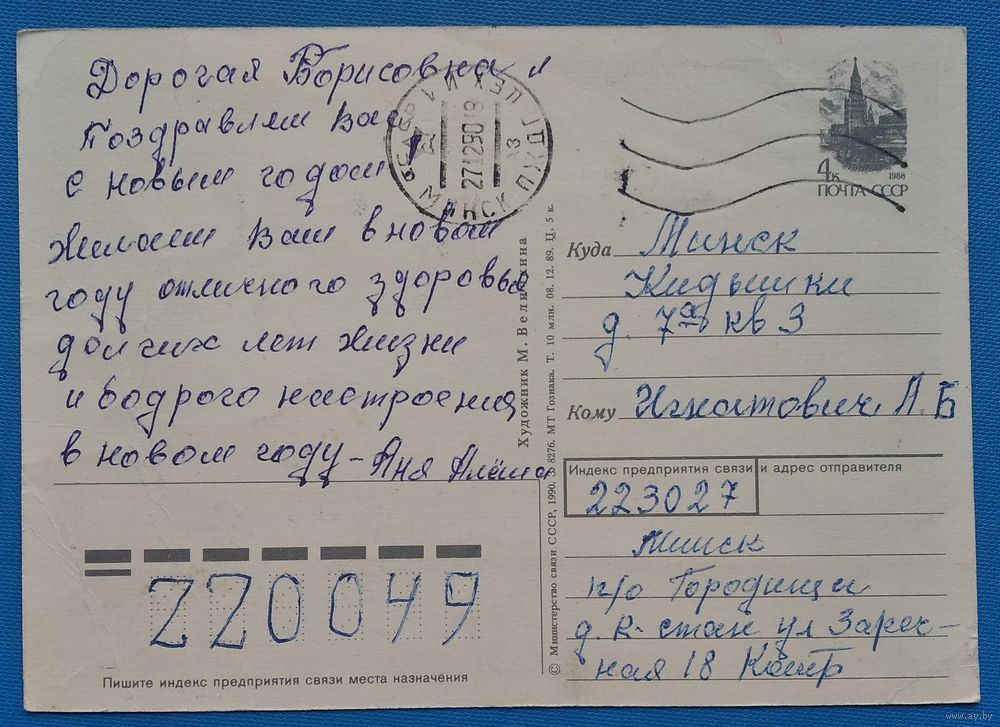 Дорогая Борисовна
Поздравляем Вас
с новым годом
Желаем Вам в новом
году отличного здоровья
долгих лет жизни
и бодрого настроения
в новом году - Аня Алёша
МИНСК
2712290 18
4к
1988
ПОЧТА СССР
Куда Минск
д. 7а кв 3
Кому Игнатович Л. Б
Индекс предприятия связи и адрес отправителя
223027
Минск
п/о Городище
ул Зареч-
ная 18
220049
Пишите индекс предприятия связи места назначения
© Министерство связи СССР, 1990. З. 8276. МТ Гознака. Т. 10 млн. 08. 12. 89. Ц. 5 к.
www.ay.by